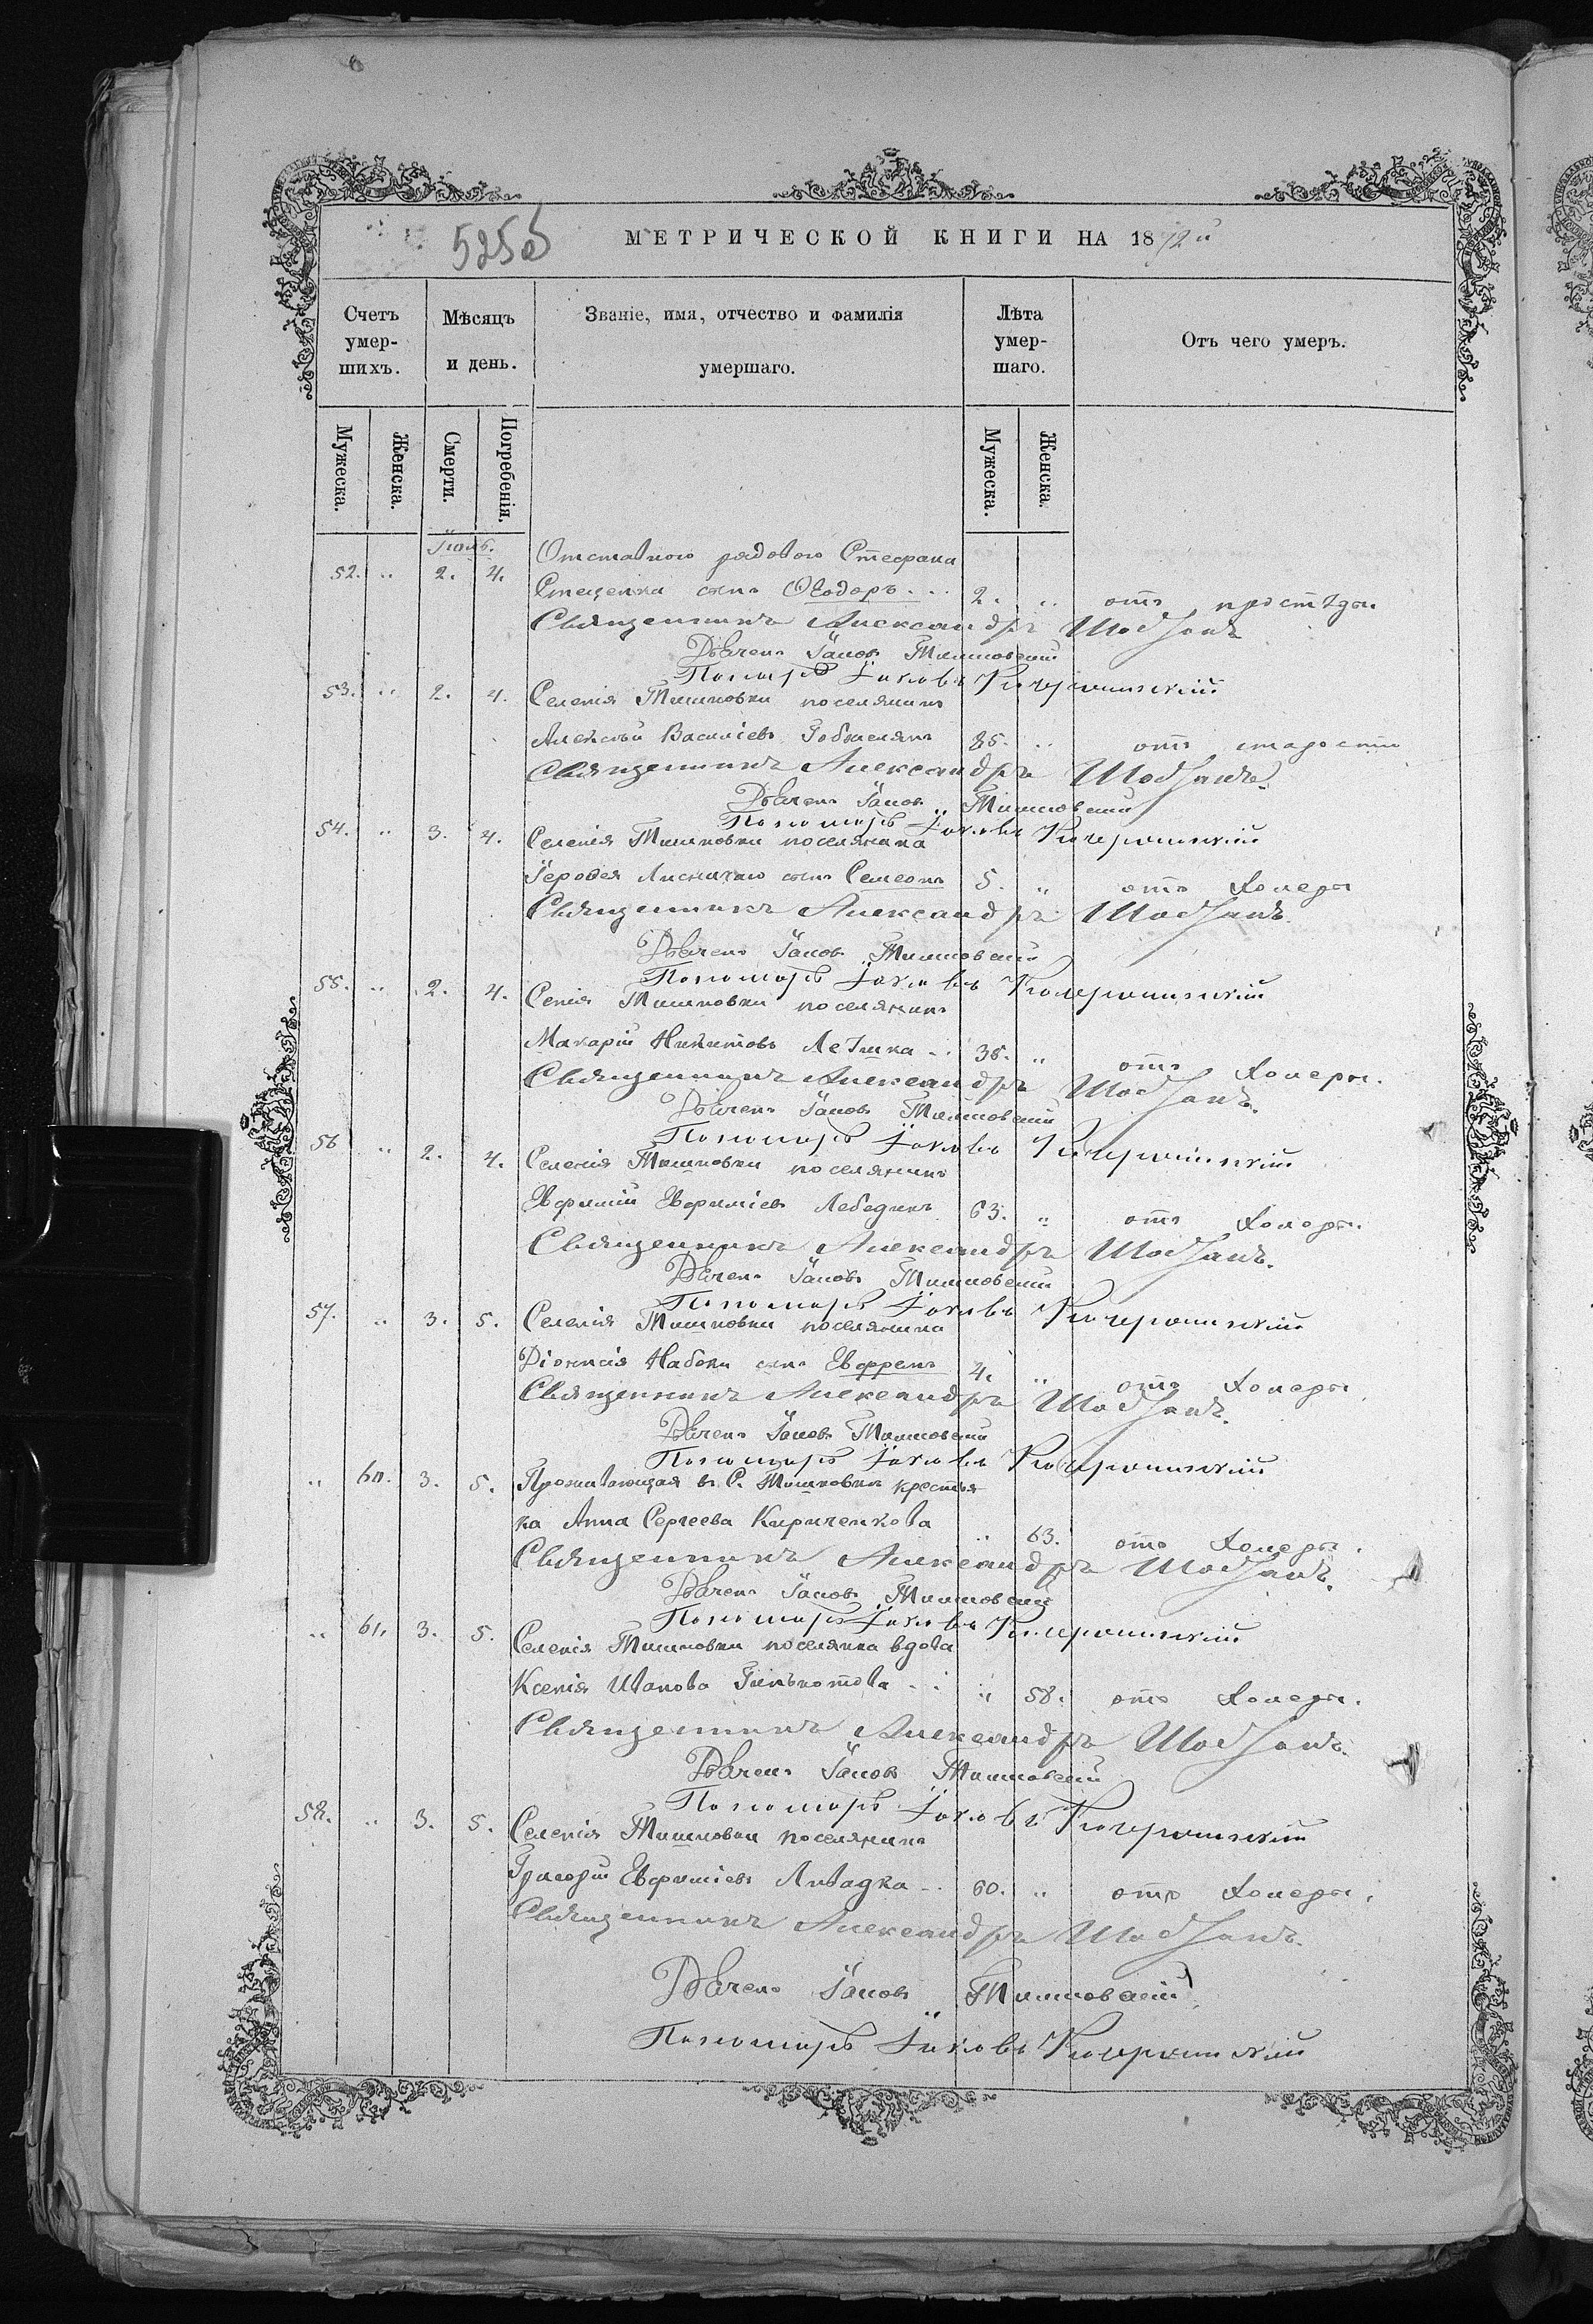 525об
МЕТРИЧЕСКОЙ КНИГИ НА 1872й
Счетъ умер-шихъ.
Мѣсяцъ и день.
Званіе, имя, отчество и фамилія умершаго.
Лѣта умер-шаго.
Отъ чего умеръ.
Мужеска.
Женска.
Смерти.
Погребенія.
Мужеска.
Женска.
Іюль.
Отставного рядового Стефана
52. " 2. 4. Стеценка сынъ Ѳеодоръ... 2. " отъ простуды
Священникъ Александръ
Дьячекъ Іаковъ Тишковскій
Пономарь Іаковъ
53. " 2. 4. Селенія Тишковки поселянинъ
Алексѣй Василіевъ 85. " отъ старости
Священникъ Александръ
Дьячекъ Іаковъ Тишковскій
Пономарь Іаковъ
54. " 3. 4. Селенія Тишковки поселянина
Іеровея сынъ Симеонъ 5. " отъ холеры
Священникъ Александръ
Дьячекъ Іаковъ Тишковскій
Пономарь Іаковъ
55. " 2. 4. Сенія Тишковки поселянинъ
Макарій Никитовъ 38. " отъ холеры.
Священникъ Александръ
Дьячекъ Іаковъ Тишковскій
Пономарь Іаковъ
56 " 2. 4. Селенія Тишковки поселянинъ
Евфимій Евфиміевъ Лебединъ 63. " отъ холеры.
Священникъ Александръ
Дьячекъ Іаковъ Тишковскій
Пономарь Іаковъ
57. " 3. 5. Селенія Тишковки поселянина
Діонисія Набоки сынъ Евфремъ 4. " отъ холеры.
Священникъ Александръ
Дьячекъ Іаковъ Тишковскій
Пономарь Іаковъ
" 60. 3. 5. Проживающая въ С. Тишковкѣ крестья
ка Анна Сергеева Кириченкова " 63. отъ холеры.
Священникъ Александръ
Дьячекъ Іаковъ Тишковскій
Пономарь Іаковъ
" 61. 3. 5. Селенія Тишковки поселянка вдова
Ксенія Иванова " 58. отъ холеры.
Священникъ Александръ
Дьячекъ Іаковъ Тишковскій
Пономарь Іаковъ
58. " 3. 5. Селенія Тишковки поселянинъ
Григорій Евфиміевъ Ливадка.. 60. " отъ холеры.
Священникъ Александръ
Дьячекъ Іаковъ Тишковскій
Пономарь Іаковъ